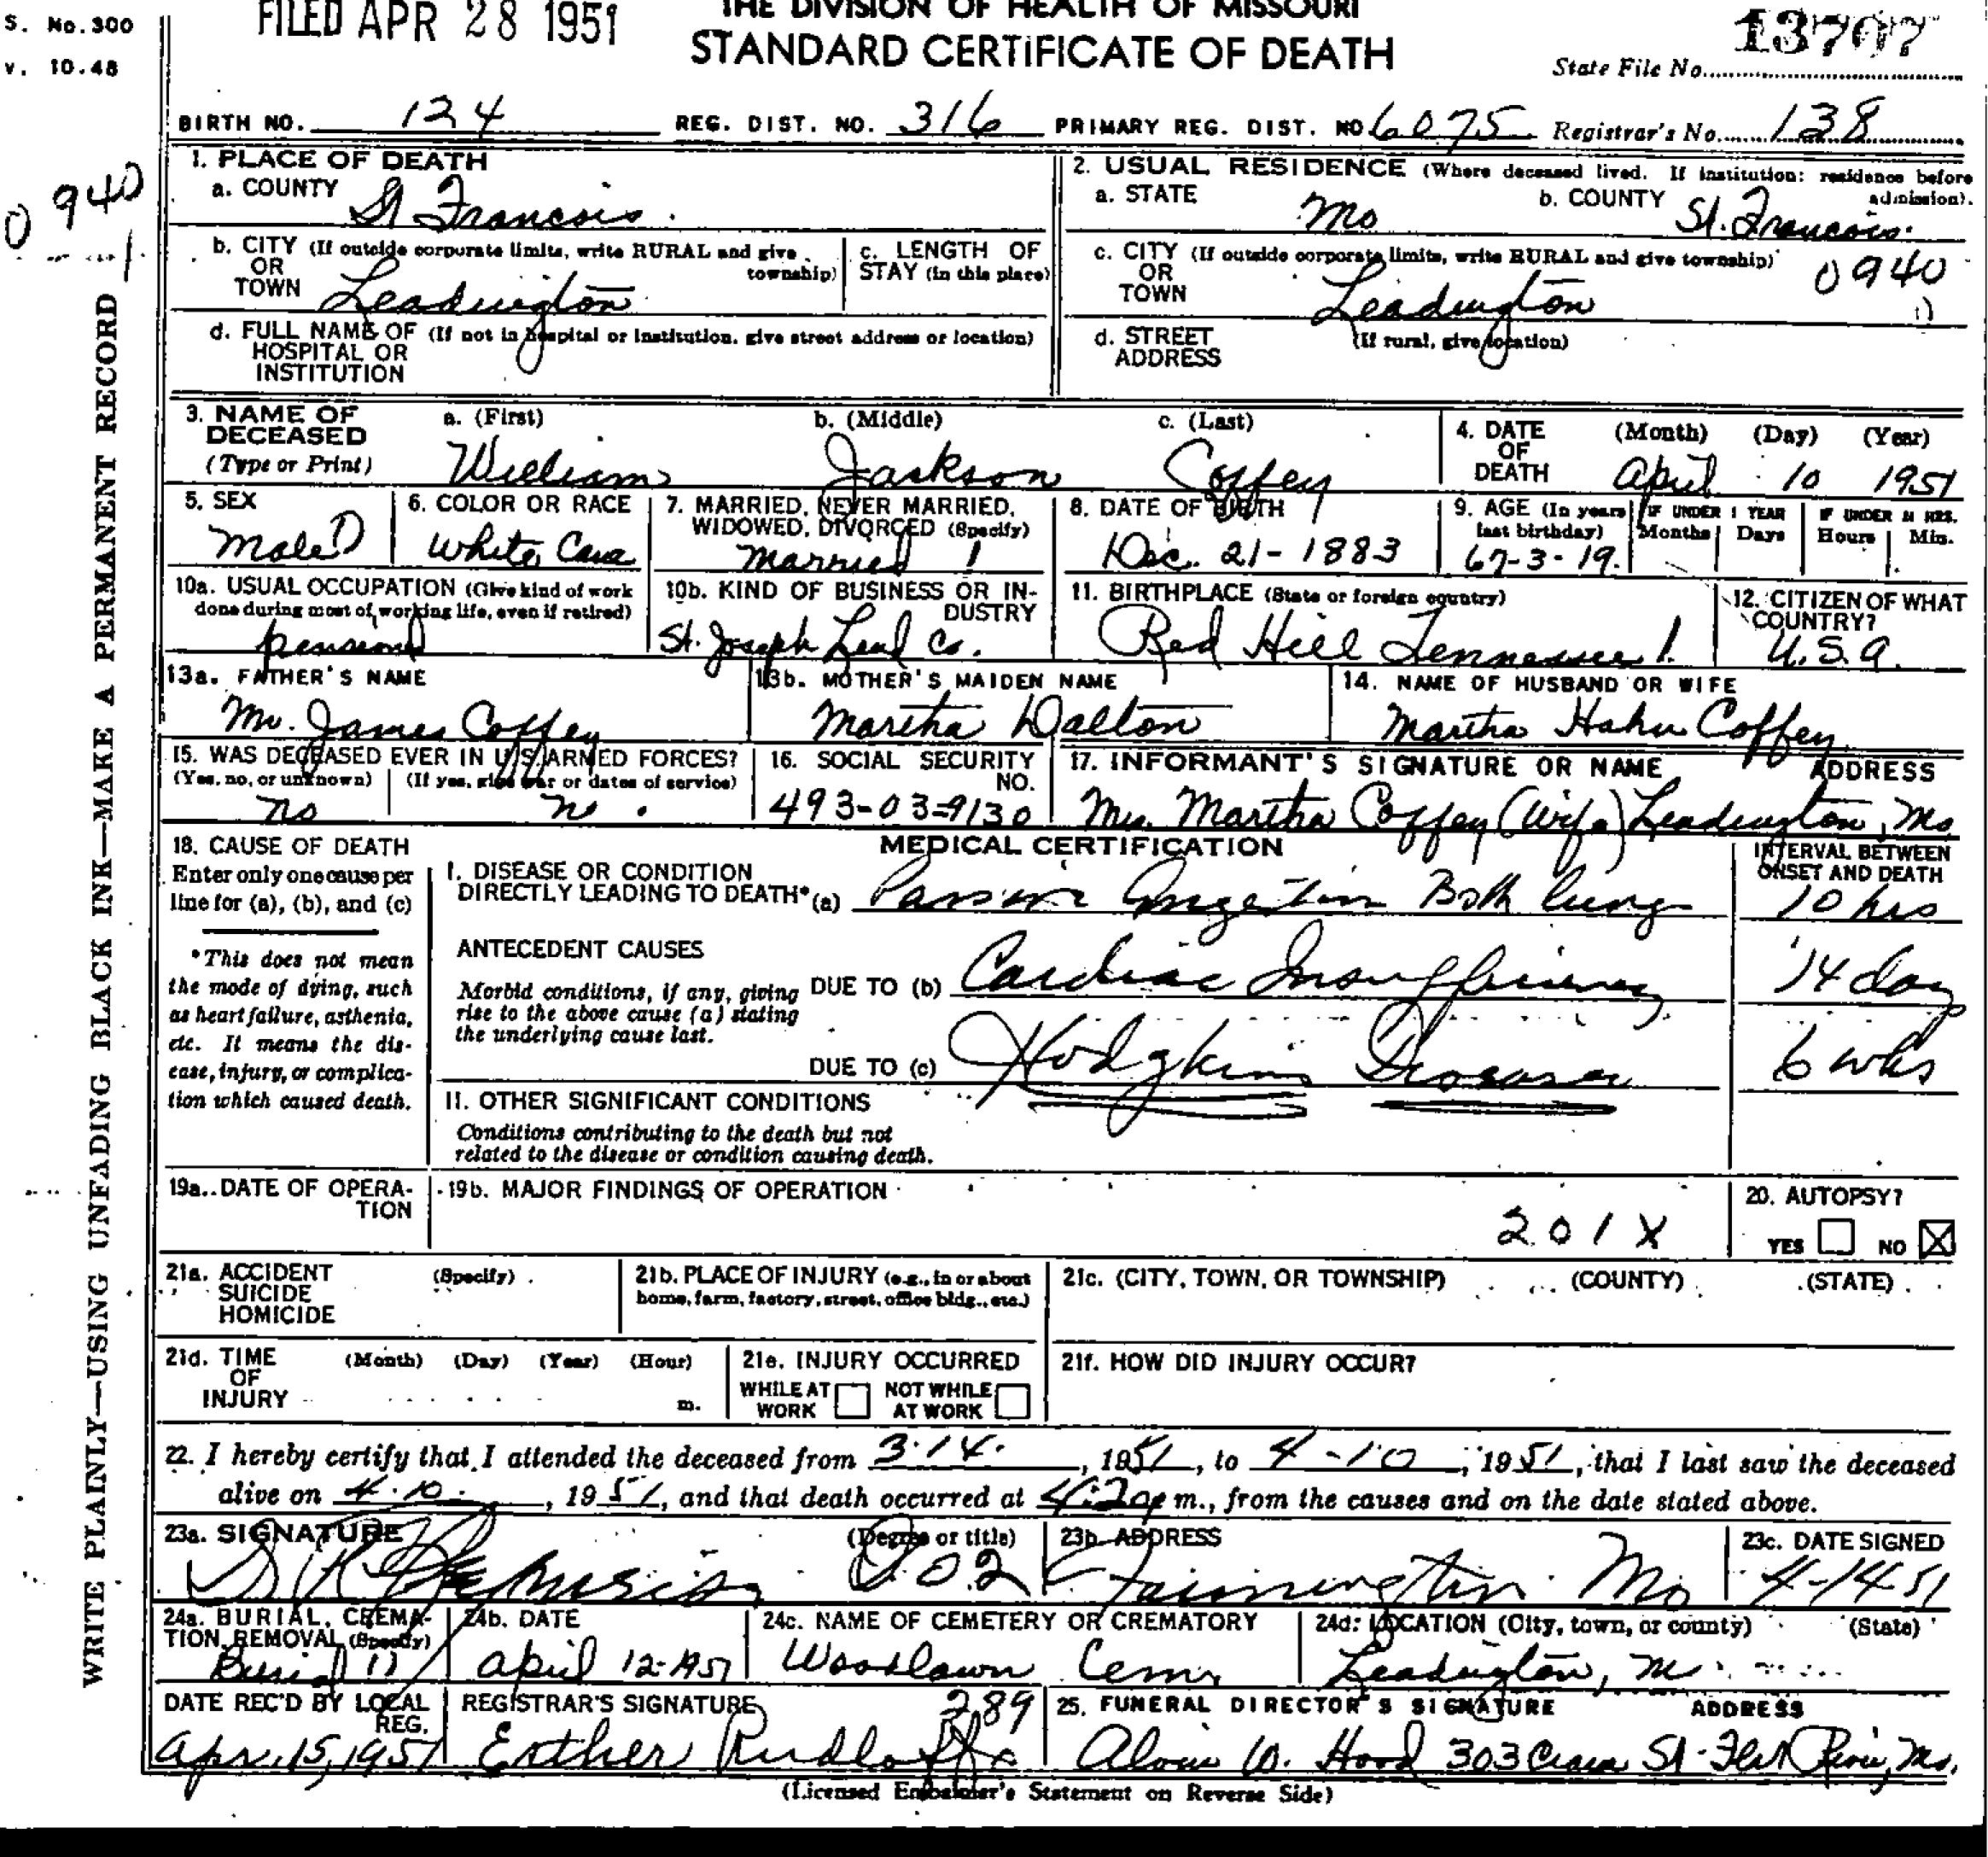 S. No.300
v. 10.48
FILED APR 28 1951
THE DIVISION OF HEALTH OF MISSOURI
STANDARD CERTIFICATE OF DEATH
State File No. 13707
BIRTH NO. 124 REG. DIST. NO. 316 PRIMARY REG. DIST. NO 6075 Registrar's No. 138
0940
1
WRITE PLAINLY—USING UNFADING BLACK INK—MAKE A PERMANENT RECORD
1. PLACE OF DEATH
a. COUNTY St Francois
b. CITY (If outside corporate limits, write RURAL and give township)
OR
TOWN Leadington
c. LENGTH OF
STAY (in this place)
d. FULL NAME OF (If not in hospital or institution, give street address or location)
HOSPITAL OR
INSTITUTION
2. USUAL RESIDENCE (Where deceased lived. If institution: residence before admission).
a. STATE Mo b. COUNTY St. Francois
c. CITY (If outside corporate limits, write RURAL and give township)
OR
TOWN Leadington 0940
d. STREET (If rural, give location)
ADDRESS
3. NAME OF DECEASED (Type or Print)
a. (First) William b. (Middle) Jackson c. (Last) Coffey
4. DATE OF DEATH (Month) (Day) (Year)
April 10 1951
5. SEX
Male
6. COLOR OR RACE
White Cau
7. MARRIED, NEVER MARRIED, WIDOWED, DIVORCED (Specify)
Married 1
8. DATE OF BIRTH
Dec. 21-1883
9. AGE (In years last birthday) IF UNDER 1 YEAR Months Days IF UNDER 24 HRS. Hours Min.
67-3-19.
10a. USUAL OCCUPATION (Give kind of work done during most of working life, even if retired)
pensioned
10b. KIND OF BUSINESS OR INDUSTRY
St. Joseph Lead Co.
11. BIRTHPLACE (State or foreign country)
Red Hill Tennessee 1.
12. CITIZEN OF WHAT COUNTRY?
U.S.a.
13a. FATHER'S NAME
Mr. James Coffey
13b. MOTHER'S MAIDEN NAME
Martha Dalton
14. NAME OF HUSBAND OR WIFE
Martha Hahn Coffey
15. WAS DECEASED EVER IN U.S. ARMED FORCES?
(Yes, no, or unknown) (If yes, give war or dates of service)
no
16. SOCIAL SECURITY NO.
493-03-9130
17. INFORMANT'S SIGNATURE OR NAME ADDRESS
Mrs. Martha Coffey (Wife) Leadington, Mo
18. CAUSE OF DEATH
Enter only one cause per
line for (a), (b), and (c)
*This does not mean
the mode of dying, such
as heart failure, asthenia,
etc. It means the dis-
ease, injury, or complica-
tion which caused death.
MEDICAL CERTIFICATION
INTERVAL BETWEEN
ONSET AND DEATH
I. DISEASE OR CONDITION
DIRECTLY LEADING TO DEATH* (a) Passive Congestion Both lungs 10 hrs
ANTECEDENT CAUSES
Morbid conditions, if any, giving
rise to the above cause (a) stating
the underlying cause last.
DUE TO (b) Cardiac Insufficiency 14 day
DUE TO (c) Hodgkins Disease 6 wks
II. OTHER SIGNIFICANT CONDITIONS
Conditions contributing to the death but not
related to the disease or condition causing death.
19a. DATE OF OPERA-
TION
19b. MAJOR FINDINGS OF OPERATION
201X
20. AUTOPSY?
YES NO X
21a. ACCIDENT (Specify)
SUICIDE
HOMICIDE
21b. PLACE OF INJURY (e.g., in or about
home, farm, factory, street, office bldg., etc.)
21c. (CITY, TOWN, OR TOWNSHIP) (COUNTY) (STATE)
21d. TIME (Month) (Day) (Year) (Hour)
OF
INJURY m.
21e. INJURY OCCURRED
WHILE AT WORK NOT WHILE AT WORK
21f. HOW DID INJURY OCCUR?
22. I hereby certify that I attended the deceased from 3.14., 1951, to 4-10, 1951, that I last saw the deceased
alive on 4.10., 1951, and that death occurred at 4:20 p m., from the causes and on the date stated above.
23a. SIGNATURE (Degree or title)
D.O.2
23b. ADDRESS
Farmington Mo
23c. DATE SIGNED
4-14-51
24a. BURIAL, CREMA-
TION, REMOVAL (Specify)
Burial
24b. DATE
April 12-1951
24c. NAME OF CEMETERY OR CREMATORY
Woodlawn Cem.
24d. LOCATION (City, town, or county) (State)
Leadington, M
DATE REC'D BY LOCAL REG.
Apr. 15, 1951
REGISTRAR'S SIGNATURE 289
Esther Rudloff
25. FUNERAL DIRECTOR'S SIGNATURE ADDRESS
Alvin W. Hood 303 St. Flat River, Mo.
(Licensed Embalmer's Statement on Reverse Side)